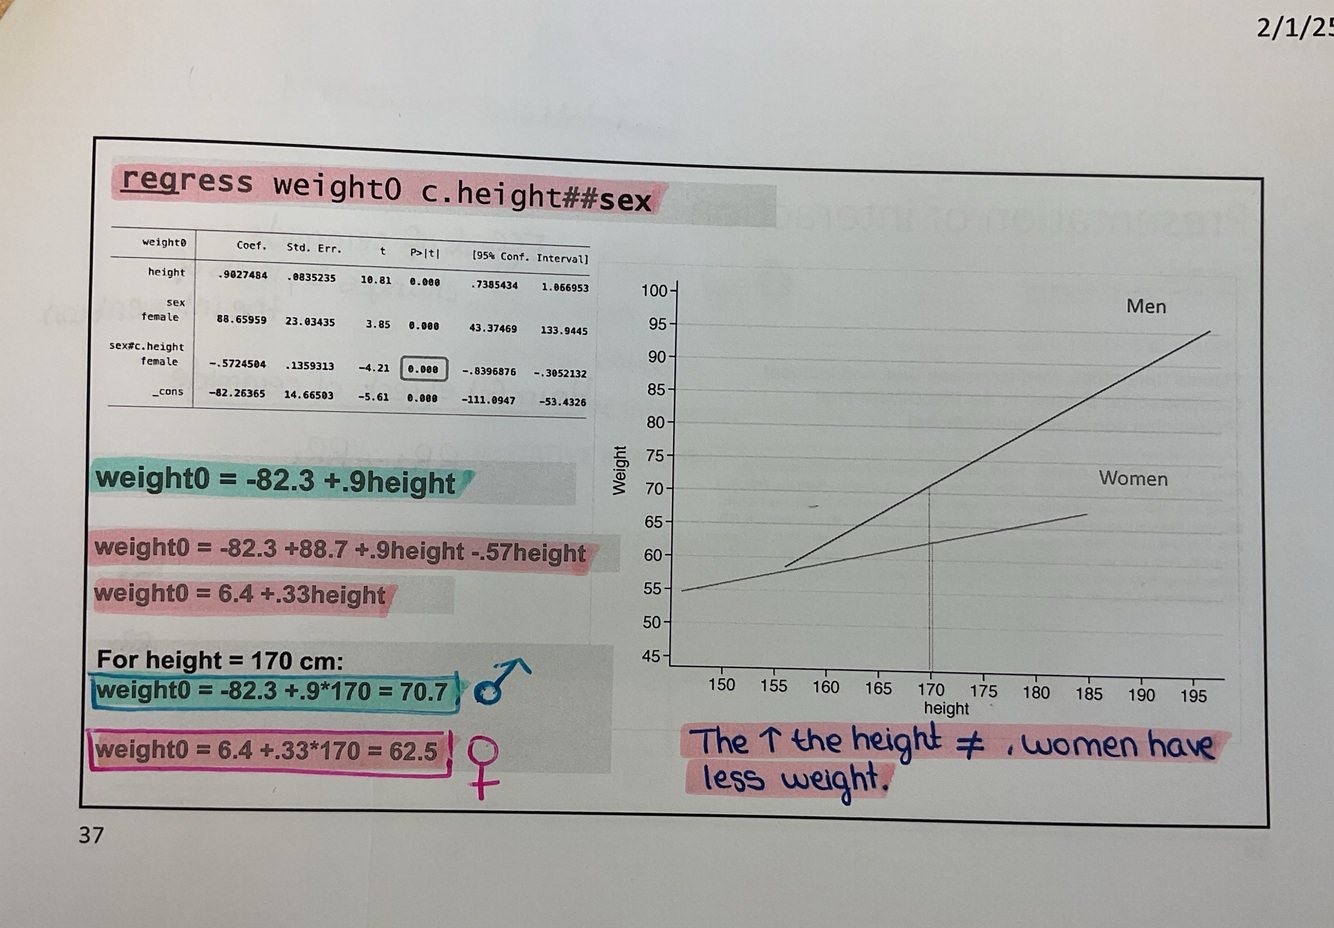 2/1/25
regress weight0 c.height##sex
weight0 Coef. Std. Err. t P>|t| [95% Conf. Interval]
height .9027484 .0835235 10.81 0.000 .7385434 1.066953
sex
female 88.65959 23.03435 3.85 0.000 43.37469 133.9445
sex#c.height
female -.5724504 .1359313 -4.21 0.000 -.8396876 -.3052132
_cons -82.26365 14.66503 -5.61 0.000 -111.0947 -53.4326
weight0 = -82.3 +.9height
weight0 = -82.3 +88.7 +.9height -.57height
weight0 = 6.4 +.33height
For height = 170 cm:
weight0 = -82.3 +.9*170 = 70.7
weight0 = 6.4 +.33*170 = 62.5
Men
Women
100
95
90
85
80
75
70
65
60
55
50
45
Weight
150 155 160 165 170 175 180 185 190 195
height
The ↑ the height ≠ , women have
less weight.
37